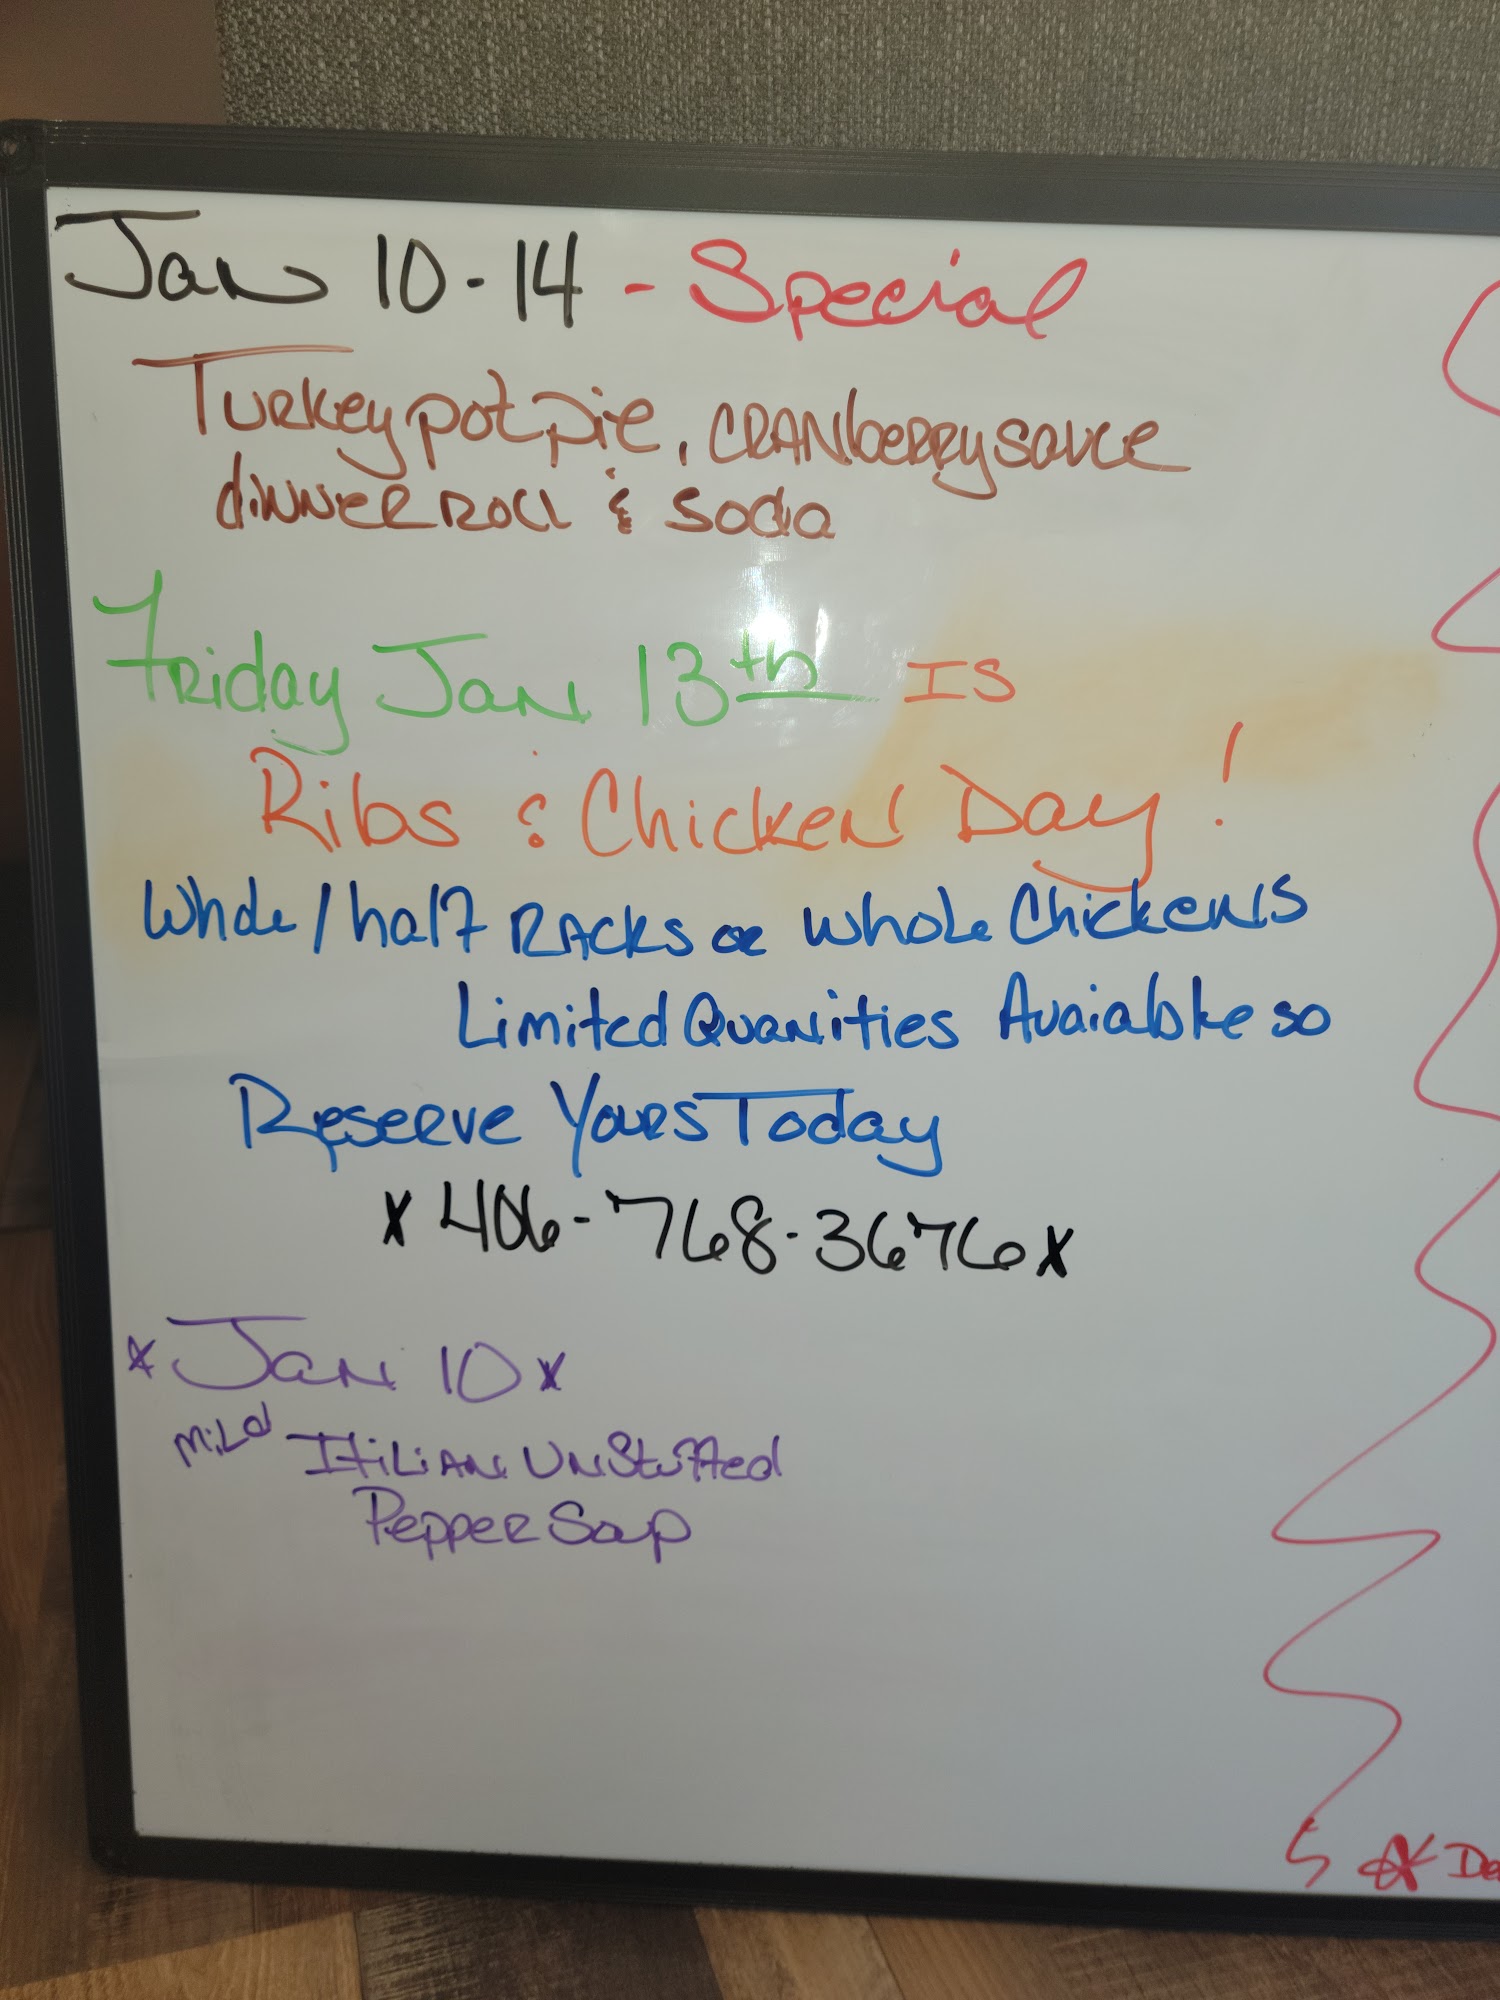 Jan 10-14 - Special
Turkey pot pie, cranberry sauce
dinner roll & soda
Friday Jan 13th is
Ribs & Chicken Day!
Whole/half Racks or whole Chickens
Limited Quanities Avaiable so
Reserve Yours Today
*406-768-3676*
*Jan 10*
mild Itilian Unstuffed
Pepper Soup
* De